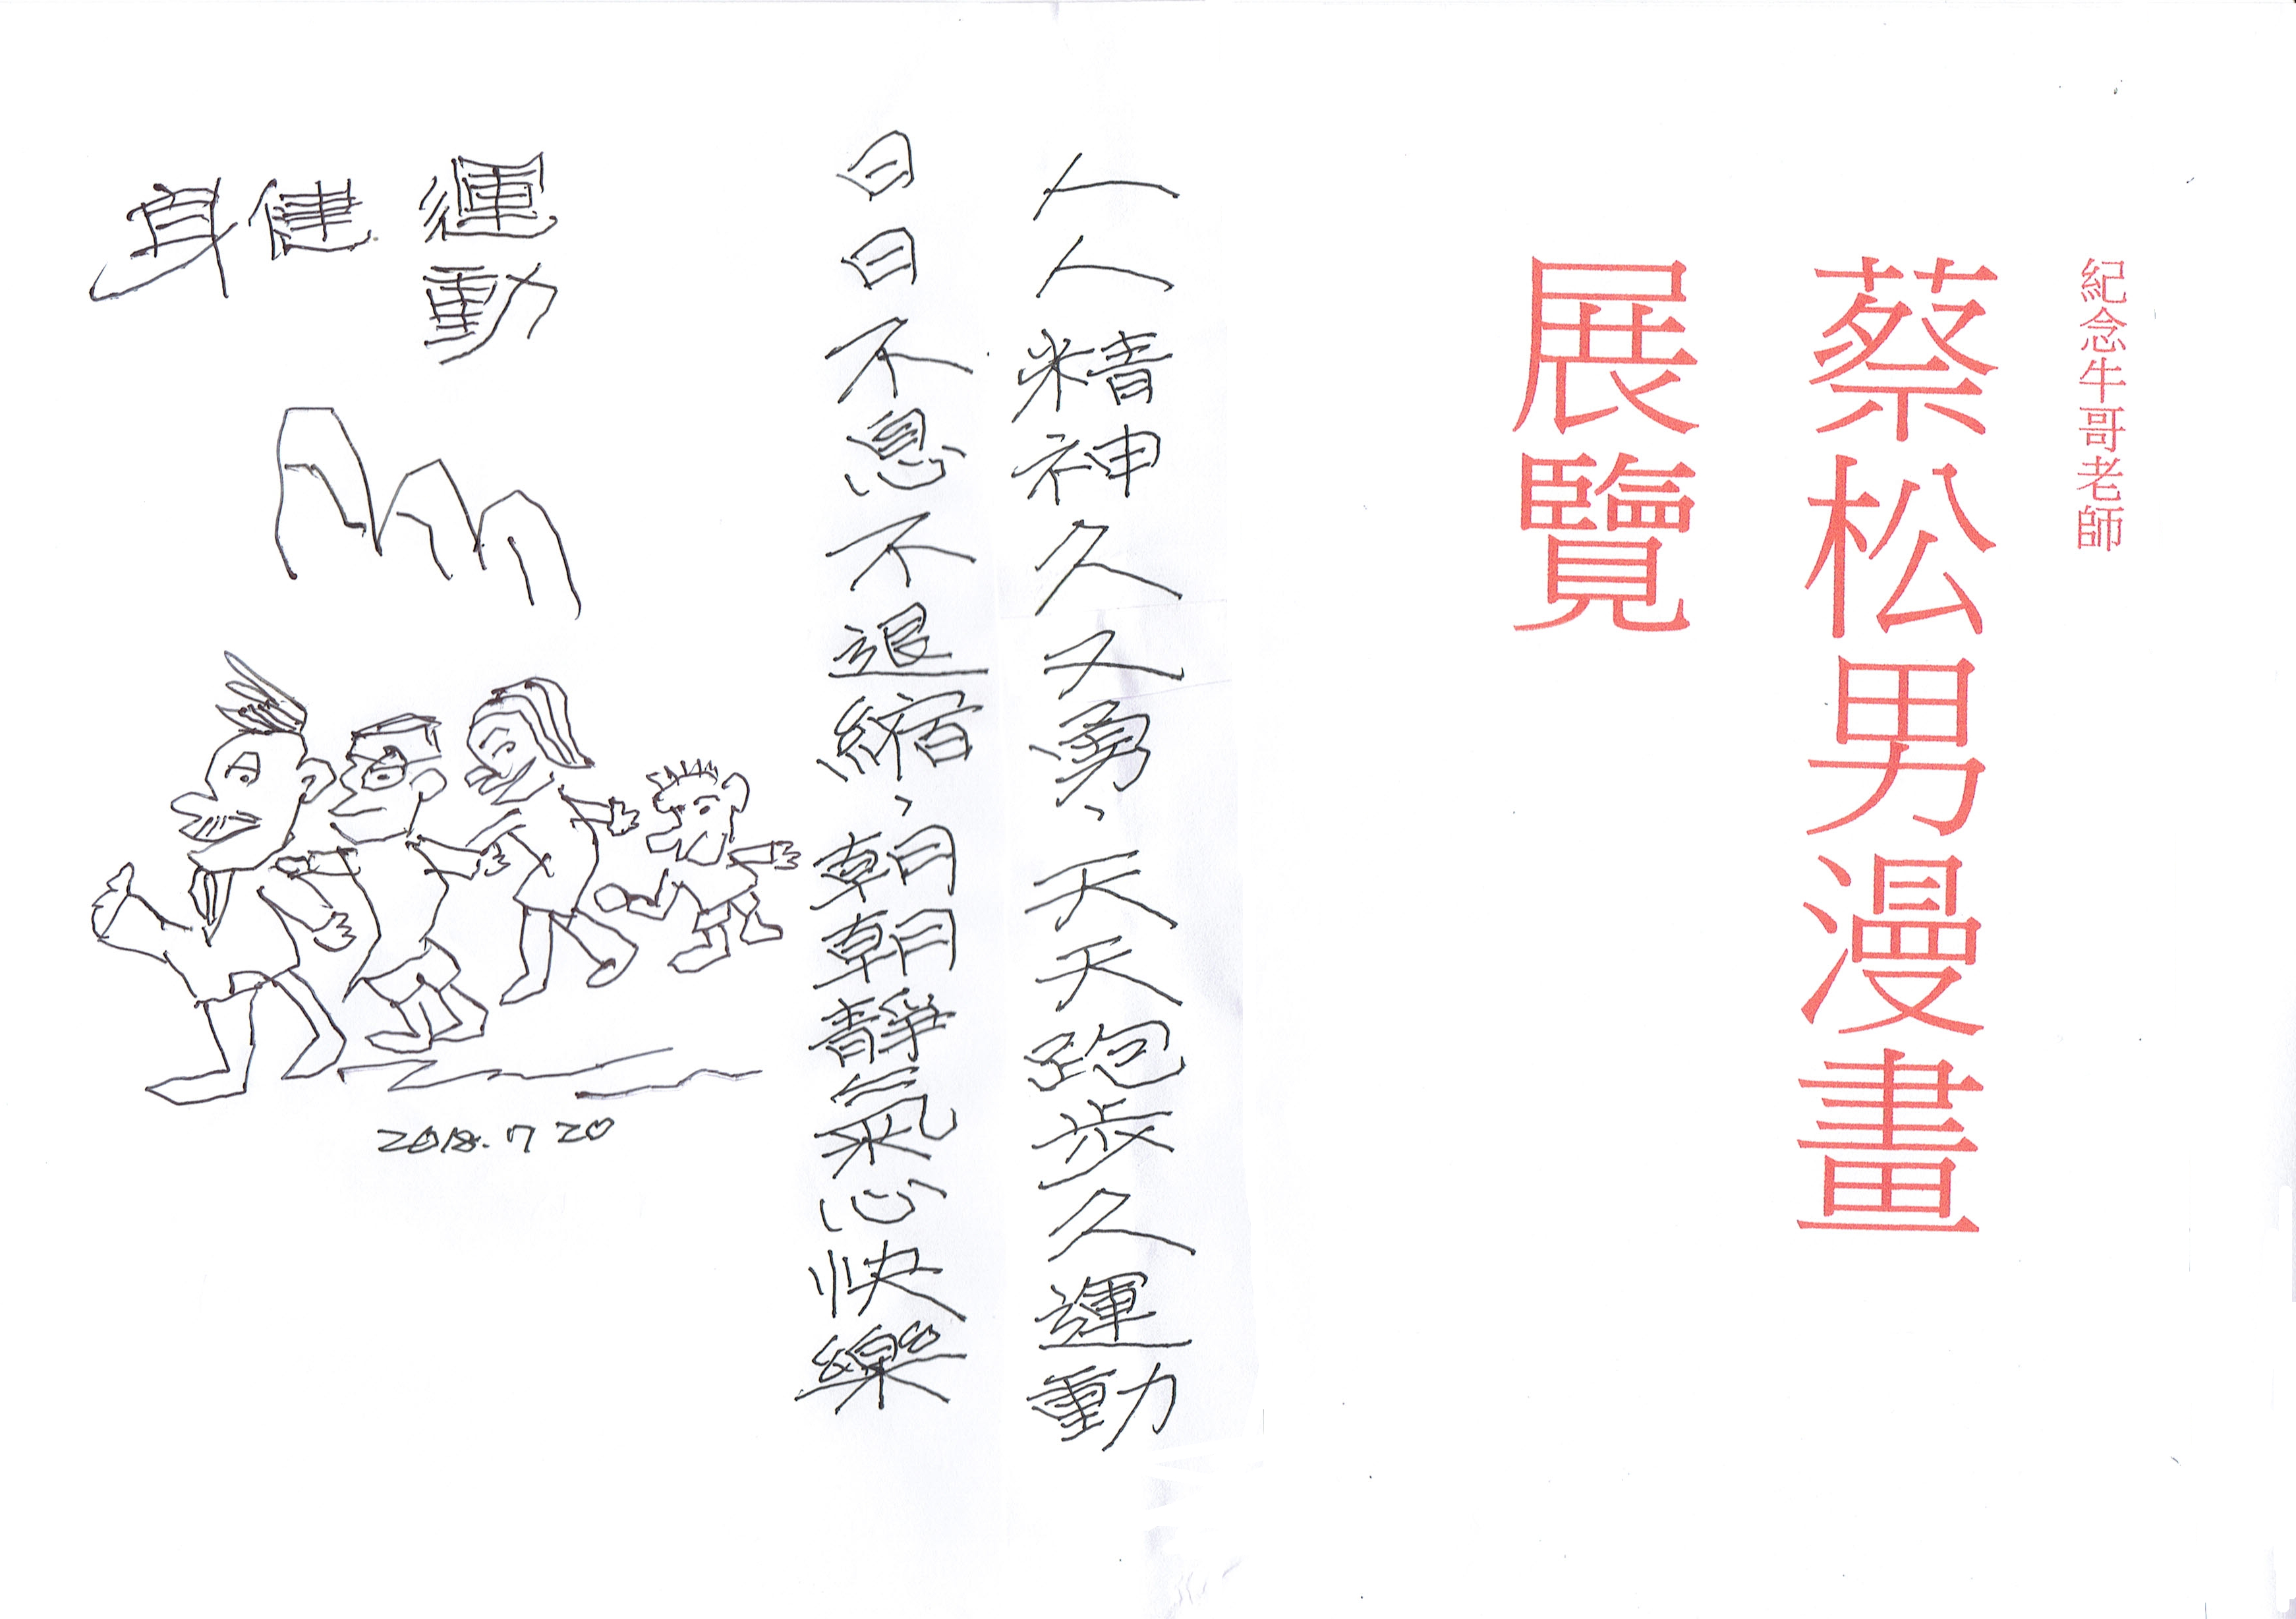 紀念牛哥老師
蔡松男漫畫
展覽
人人精神久又勇、天天跑步久運動
日日不息不退縮、朝朝靜氣心快樂
運動
健身
2018.7 20